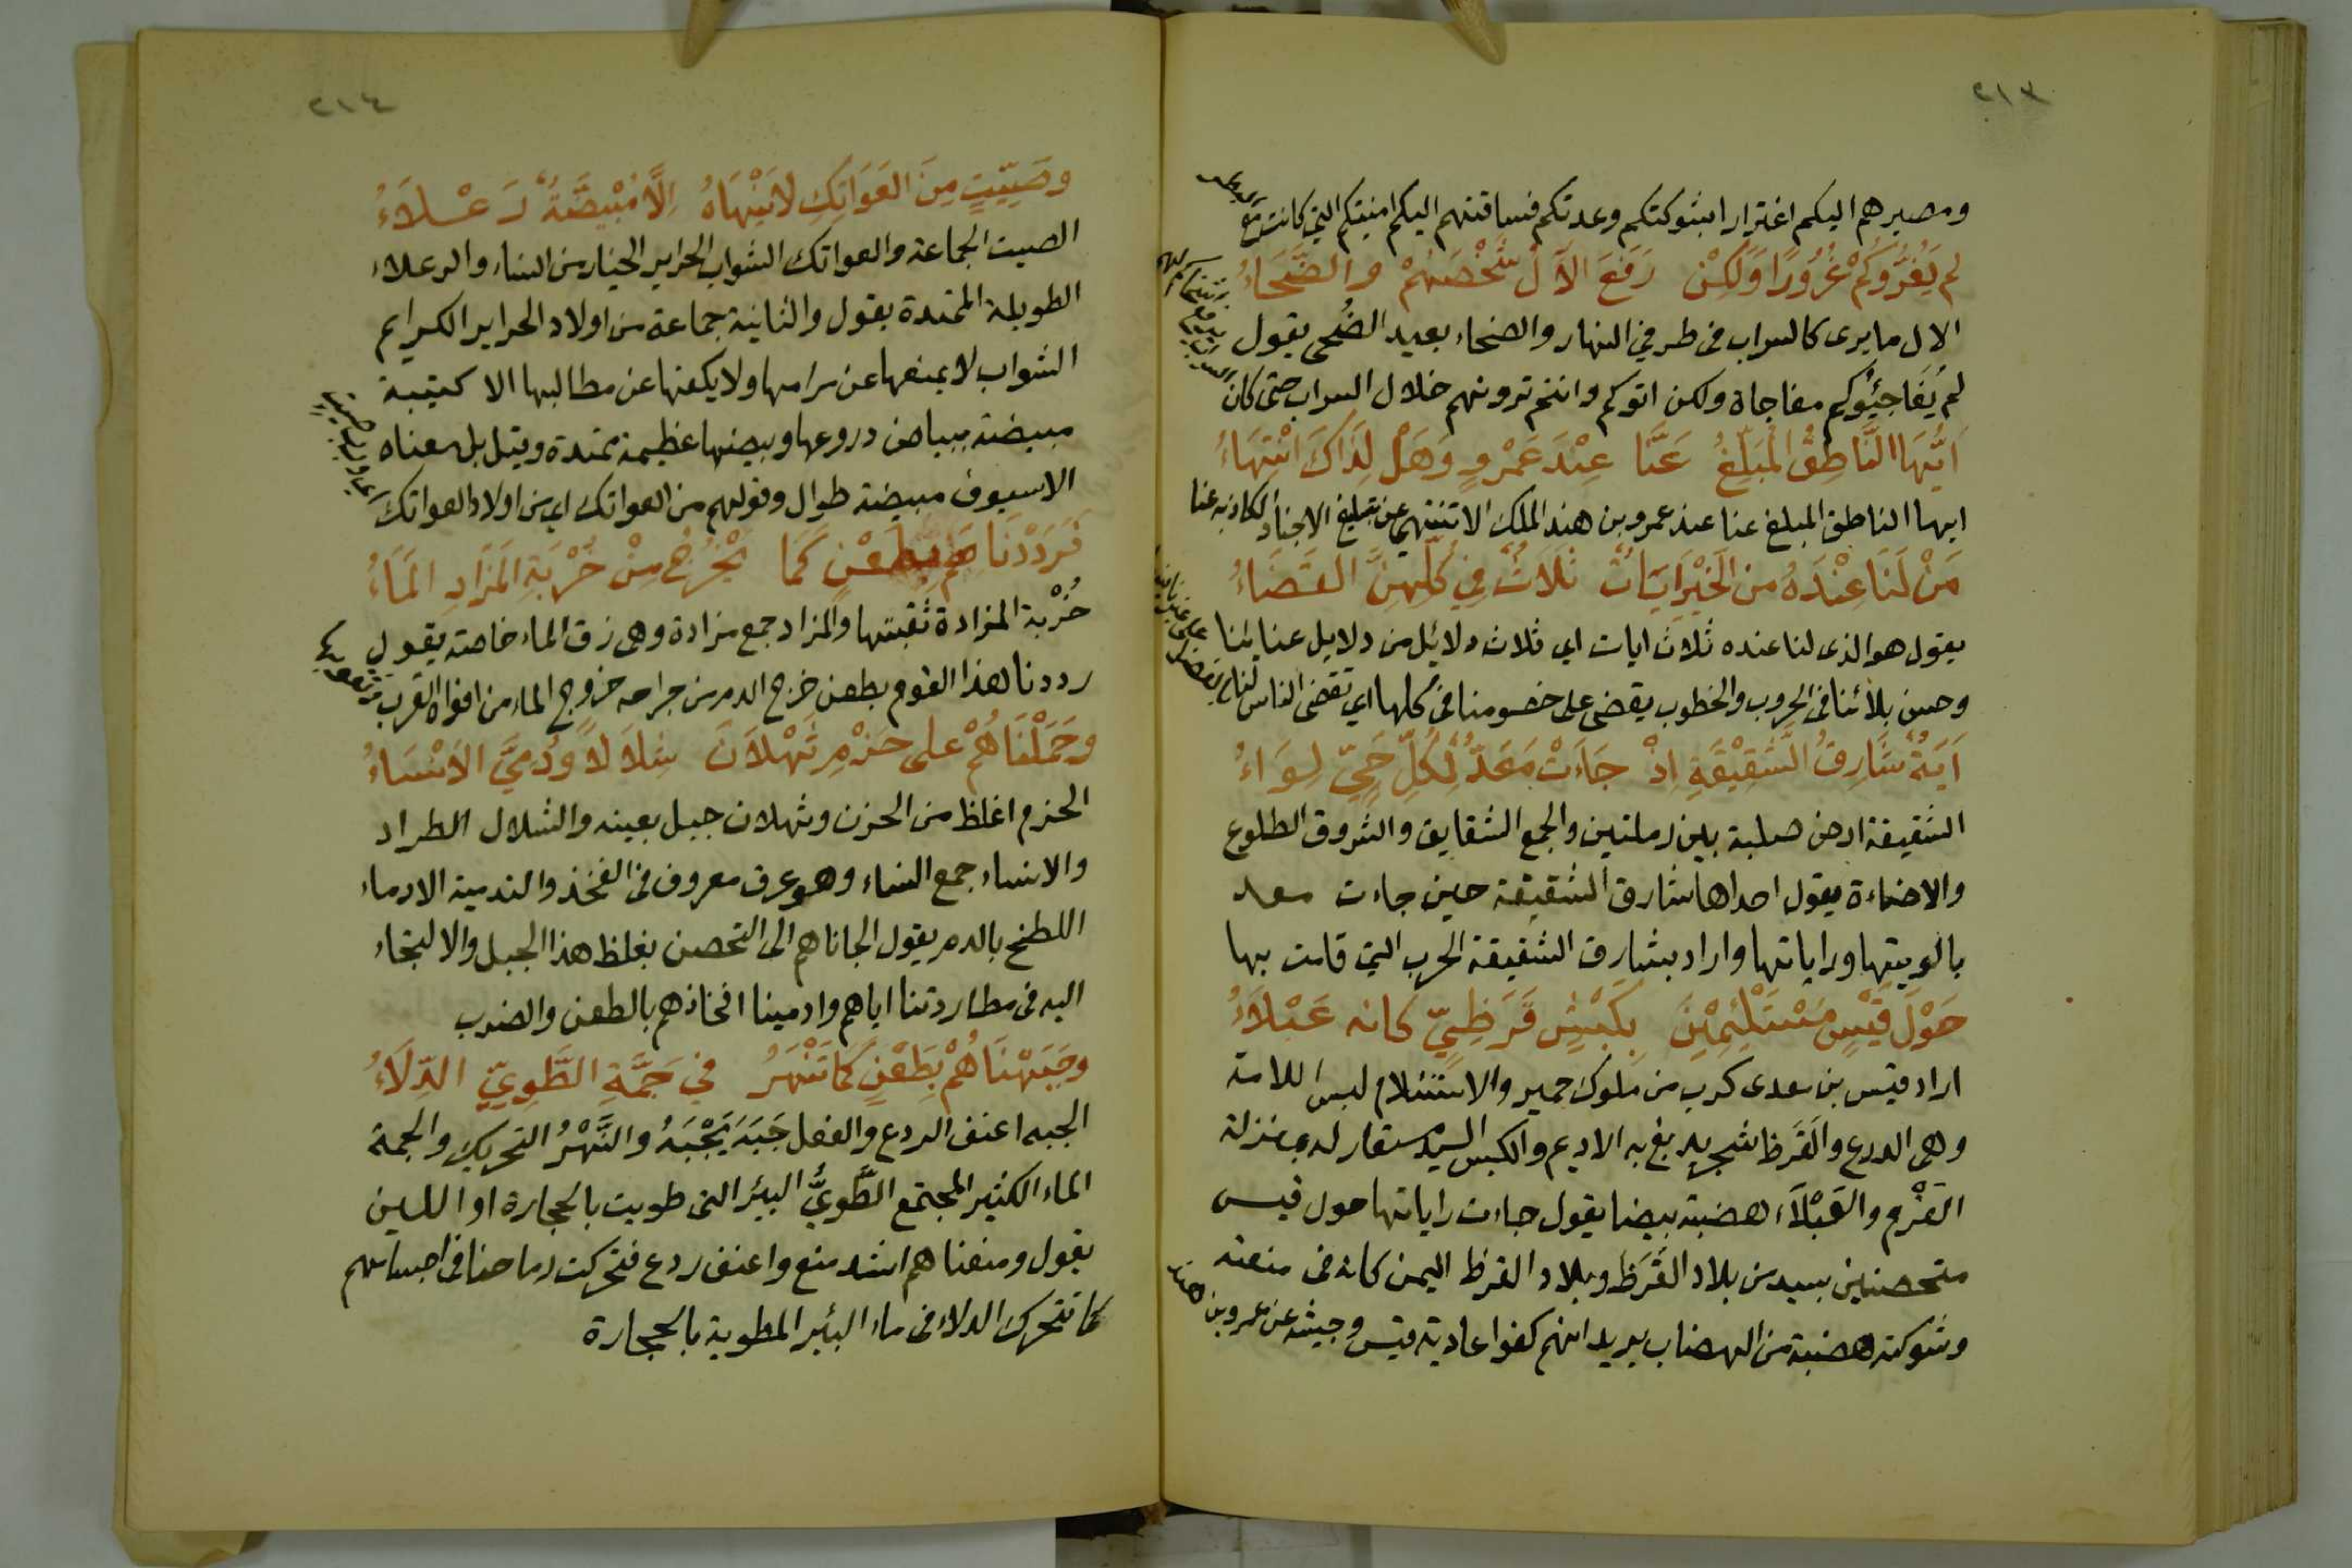 ٢١٣
ومصيرهم اليكم اغترارا بشوكتكم وعدتكم فساقتهم اليكم امنيتكم التي كانت مع
لم يَغُرُّوكُمْ غُرُورًا وَلَكِنْ رَفَعَ الآلُ شَخْصَهُمْ والضَّحَاءُ
الال ما يرى كالسراب فى طرفي النهار والضحاء بعيد الضُحى يقول
لم يُفَاجِئُوكم مفاجاة ولكن اتوكم وانتم ترونهم خلال السراب حتى كان
اَيُّهَا النَّاطِقُ المُبَلِّغُ عَنَّا عِنْدَ عَمْرٍو وَهَلْ لِذَاكَ انْتِهَاءُ
ايها الناطق المبلغ عنا عند عمرو بن هند الملك الا تنتهي عن تبليغ الاخبار الكاذبه عنا
مَنْ لَنَا عِنْدَهُ من الخَيْرِ آيَاتٌ ثَلَاثٌ فِي كُلِّهِنَّ القَضَاءُ
يقول هو الذى لنا عنده ثلاث ايات اي ثلاث دلائل من دلايل عنايئنا
وحسن بلائنا فى الحروب والخطوب يقضى على خصومنا فى كلها اي تقضى الناس لنا
اَيَةٌ شَارِقُ الشَّقِيْقَةِ اِذْ جَاءَتْ مَعَدٌّ لِكُلِّ حَيٍّ لِوَاءُ
الشقيقة ارض صلبة بين رملتين والجمع الشقايق والشروق الطلوع
والاضاءة يقول احداها شارق الشقيقة حين جاءت معد
بالويتها وراياتها واراد بشارق الشقيقة الحرب التي قامت بها
حَوْلَ قَيْسٍ مُسْتَلْئِمِيْنَ بِكَبْشٍ قَرَظِيٍّ كانه عَبْلَاءُ
اراد قيس بن معدى كرب من ملوك حمير والاستلئام لبس اللامة
وهى الدرع والقَرَظ شجر يدبغ به الاديم والكبش السيد مستعار له بمنزلة
القَرْم والعَبْلَاء هضبة بيضا يقول جاءت راياتها حول قيس
متحصنين بسيد من بلاد القَرَظ وبلاد القرظ اليمن كانه فى منعته
وشوكته هضبة من الهضاب يريد انهم كفوا عادية قيس وجيشه عن عمرو بن هند
٢١٤
وصَتِيْتٍ مِنَ العَوَاتِكِ لا تَنْهَاهُ اِلَّا مُبْيَضَّةٌ رَعْلَاءُ
الصيت الجماعة والعواتك الشواب الحراير الخيار من النساء والرعلاء
الطويلة الممتدة يقول والثانية جماعة من اولاد الحراير الكرايم
الشواب لا يمنعها عن مرامها ولا يكفها عن مطالبها الا كتيبة
مبيضة ببياض دروعها وبيضها عظيمة ممتدة وقيل بل معناه
الا سيوف مبيضة طوال وقولهم من العواتك اي من اولاد العواتك
فَرَدَدْنَاهم بِطَعْنٍ كَمَا يَخْرُجُ مِنْ خُرْبَةِ المَزَادِ المَاءُ
خُرْبة المزادة ثقبتها والمزاد جمع مزادة وهى زق الماء خاصة يقول
رددنا هذا القوم بطعن خرج الدم من جراحه خروج الماء من افواه القرب
وحَمَلْنَاهُمْ على حَزْمِ ثَهْلَانَ شِلَالاً وَدُمِّيَ الاَنْسَاءُ
الحزم اغلظ من الحزن وثهلان جبل بعينه والشلال الطراد
والانساء جمع النساء وهو عرق معروف فى الفخذ والتدمية الادماء
اللطخ بالدم يقول الجاناهم الى التحصن بغلظ هذا الجبل والالتجاء
اليه فى مطاردتنا اياهم وادمينا افخاذهم بالطعن والضرب
وجَبَهْنَاهُمْ بِطَعْنٍ كَمَا تُنْهَزُ في جَمَّةِ الطَّوِيِّ الدِّلَاءُ
الجبه اعنف الردع والفعل جَبَهَ يَجْبَهُ والنَّهْزُ التحريك والجمة
الماء الكثير المجتمع الطَّوِيُّ البئر التى طويت بالحجارة او اللبن
يقول ومنعناهم اشد منع واعنف ردع فتحركت رماحنا فى اجسامهم
كما تتحرك الدلاء فى ماء البئر المطوية بالحجارة